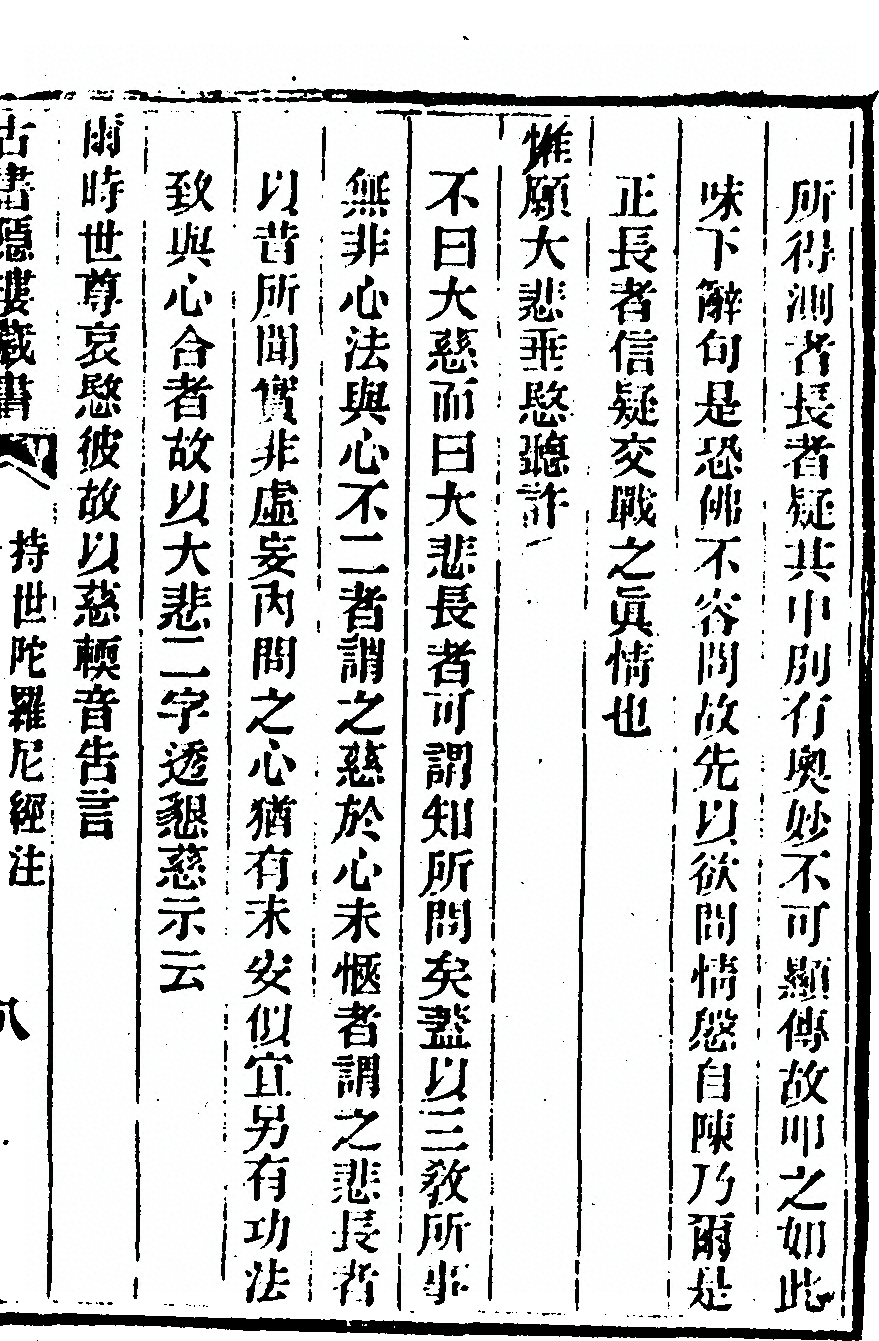 所得測者長者疑其中別有奧妙不可顯傳故叩之如此
味下辭句是恐佛不容問故先以欲問情慇自陳乃爾是
正長者信疑交戰之眞情也
惟願大悲垂愍聽許
不曰大慈而曰大悲長者可謂知所問矣蓋以三教所事
無非心法與心不二者謂之慈於心未愜者謂之悲長者
以昔所聞實非虛妄內問之心猶有未安似宜另有功法
致與心合者故以大悲二字透懇慈示云
爾時世尊哀愍彼故以慈輭音告言
古書隱樓藏書
持世陀羅尼經注
八